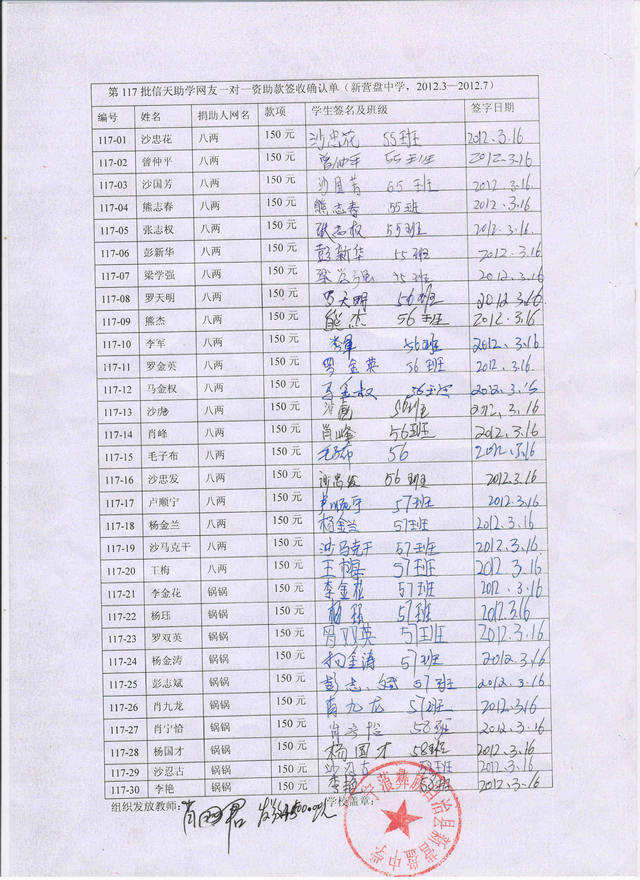 第 117 批信天助学网友一对一资助款签收确认单（新营盘中学，2012.3—2012.7）
编号 姓名 捐助人网名 款项 学生签名及班级 签字日期
117-01 沙忠花 八两 150 元 沙忠花 55班 2012.3.16
117-02 曾仲平 八两 150 元 曾仲平 55班 2012.3.16.
117-03 沙国芳 八两 150 元 沙国芳 55班 2012.3.16.
117-04 熊志春 八两 150 元 熊志春 55班 2012.3.16
117-05 张志权 八两 150 元 张志权 55班 2012.3.16
117-06 彭新华 八两 150 元 彭新华 55班 2012.3.16
117-07 梁学强 八两 150 元 梁学强 55班 2012.3.16
117-08 罗天明 八两 150 元 罗天明 56班 2012.3.16
117-09 熊杰 八两 150 元 熊杰 56班 2012.3.16
117-10 李军 八两 150 元 李军 56班 2012.3.16
117-11 罗金英 八两 150 元 罗金英 56班 2012.3.16
117-12 马金权 八两 150 元 马金权 56班 2012.3.16
117-13 沙彪 八两 150 元 沙彪 56班 2012.3.16
117-14 肖峰 八两 150 元 肖峰 56班 2012.3.16
117-15 毛子布 八两 150 元 毛子布 56 2012.3.16
117-16 沙忠发 八两 150 元 沙忠发 56班 2012.3.16
117-17 卢顺宁 八两 150 元 卢顺宁 57班 2012.3.16
117-18 杨金兰 八两 150 元 杨金兰 57班 2012.3.16
117-19 沙马克干 八两 150 元 沙马克干 57班 2012.3.16
117-20 王梅 八两 150 元 王梅 57班 2012.3.16
117-21 李金花 锅锅 150 元 李金花 57班 2012.3.16
117-22 杨珏 锅锅 150 元 杨珏 57班 2012.3.16
117-23 罗双英 锅锅 150 元 罗双英 57班 2012.3.16
117-24 杨金涛 锅锅 150 元 杨金涛 57班 2012.3.16
117-25 彭志斌 锅锅 150 元 彭志斌 57班 2012.3.16
117-26 肖九龙 锅锅 150 元 肖九龙 57班 2012.3.16
117-27 肖宁恰 锅锅 150 元 肖宁恰 58班 2012.3.16
117-28 杨国才 锅锅 150 元 杨国才 58班 2012.3.16
117-29 沙忍古 锅锅 150 元 沙忍古 58班 2012.3.16
117-30 李艳 锅锅 150 元 李艳 58班 2012.3.16
组织发放教师： 学校盖章：
宁蒗彝族自治县新营盘中学